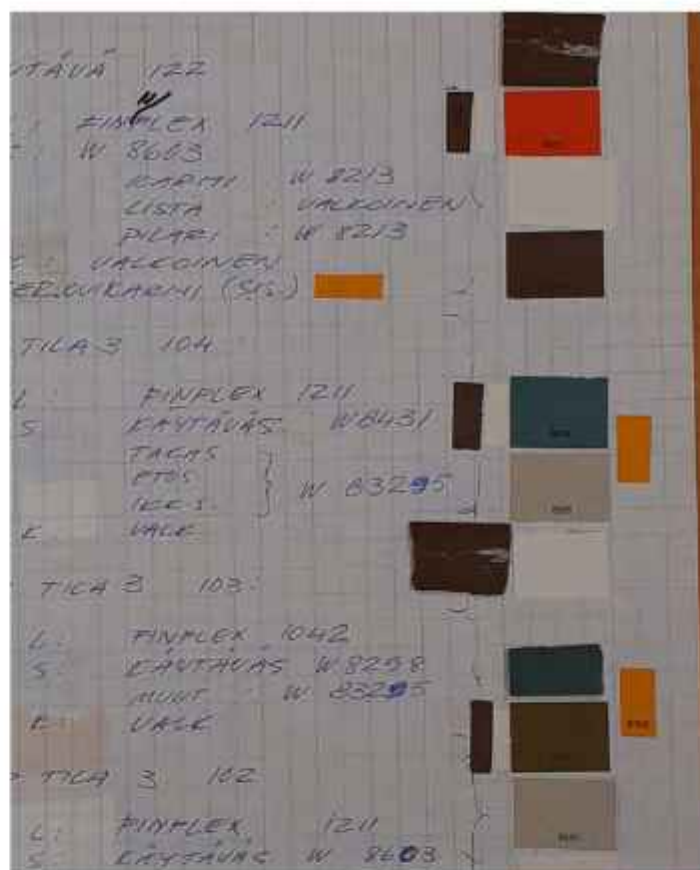 122
L: FINFLEX 1211
W 8603
KARMI W 8213
LISTA : VALKOINEN
PILARI : W 8213
: VALKOINEN
(SIS.)
TILA 3 104
L: FINFLEX 1211
S KÄYTÄVÄS W8431
TAKAS
ETUS
IKK S. W 83295
K VALK
TILA 3 103:
L: FINFLEX 1042
S: KÄYTÄVÄS W 8298
MUUT W 83295
K: VALK
TILA 3 102
L: FINFLEX 1211
S: KÄYTÄVÄS W 8603